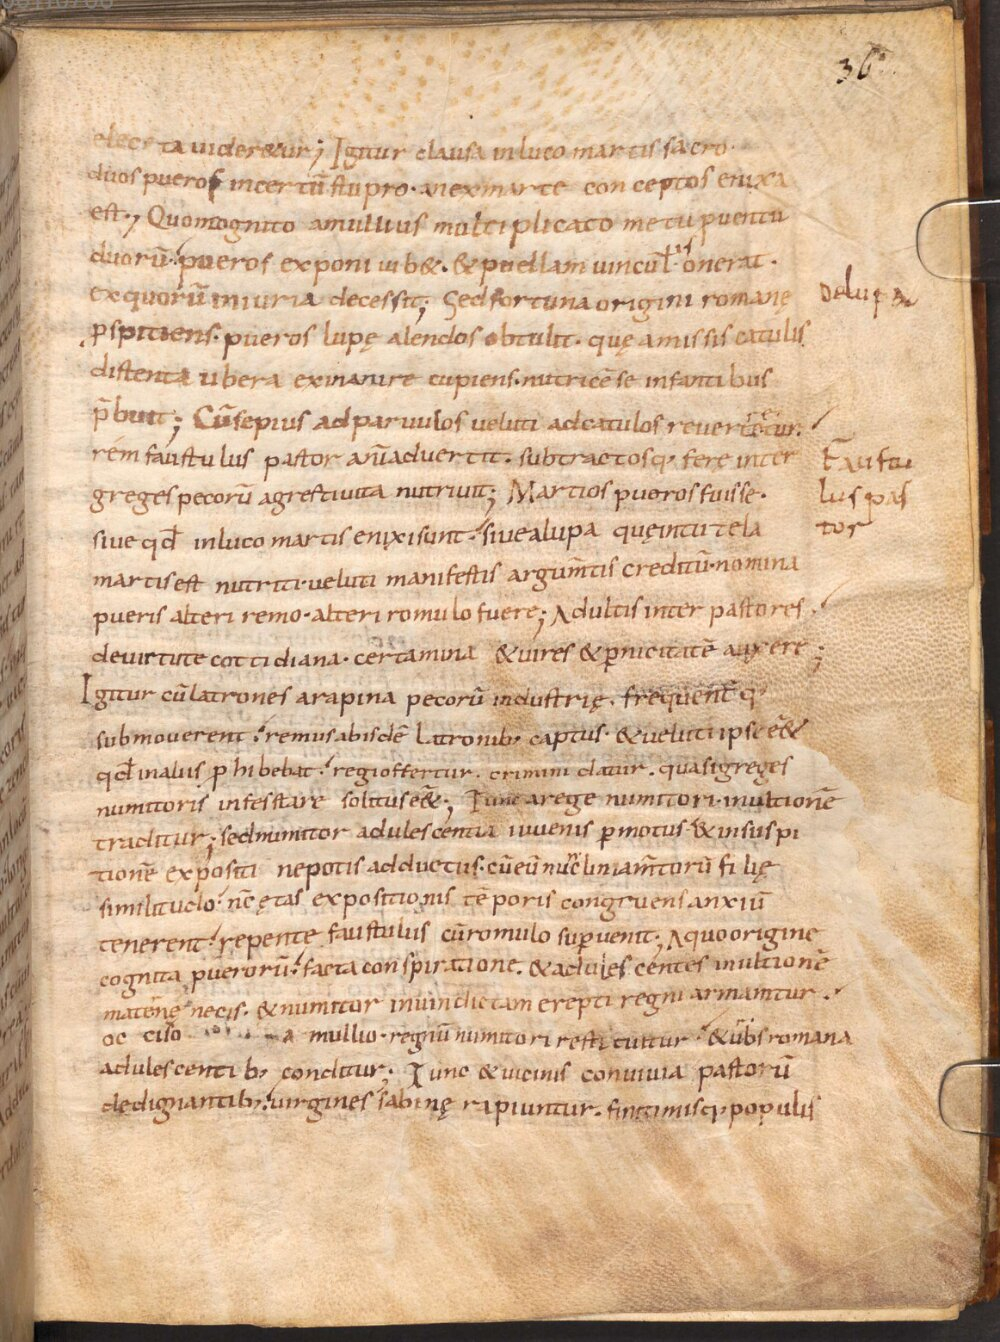 36
elec ta uideretur; Igitur clausa inluco martis sacro·
duos pueros incertū stupro· an exmarte conceptos enixa
est; Quo cognito amulius multiplicato metu puentū
duorū· pueros exponi iub&· & puellam uinculis onerat·
exquorū iniuria decessit; Sed fortuna origini romanę
pspitiens· pueros lupę alendos obtulit· quę amissis catulis
distenta ubera exinanire cupiens· nutricē se infantibus
p̄buit; Cū sepius ad paruulos ueluti adcatulos reuerteretur·
rem faustulus pastor aīaduertit· subtractosq· ferę inter
greges pecorū agrestiuita nutriuit; Martios pueros fuisse·
siue qd̄ inluco martis enixisunt· siue alupa quę intutela
martis est nutriti· ueluti manifestis argum̄tis creditū· nomina
pueris alteri remo· alteri romulo fuere; Adultis inter pastores·
deuirtute cottidiana· certamina & uires & pnicitatē auxere;
Igitur cū latrones arapina pecorū industrię· frequent̄ q·
submouerent· remus abisdē latronib; captus· & ueluti ipse eēt
qd̄ inaliis phibebat· regi offertur· crimini datur· quasi greges
numitoris infestare solitus eēt; Tunc a rege numitori· inultionē
traditur; sed numitor adulescentia iuuenis pmotus· & insuspi
tionē expositi nepotis adductus· cū eū nūc liniam̄torū filię
similitudo· nc̄ ętas expositionis tēporis congruens anxiū
tenerent· repente faustulus cū romulo supuenit; A quo origine
cognita puerorū· facta conspiratione· & adulescentes inultionē
maternę necis· & numitor inuindictam erepti regni armantur·
oc ciso a mullio· regnū numitori restituitur· & urbs romana
adulescentib; conditur; Tunc & uicinis conuiuia pastorū
dedignantib; uirgines sabinę rapiuntur· finitimisq; populis
De lupa
Faustu
lus pas
tor